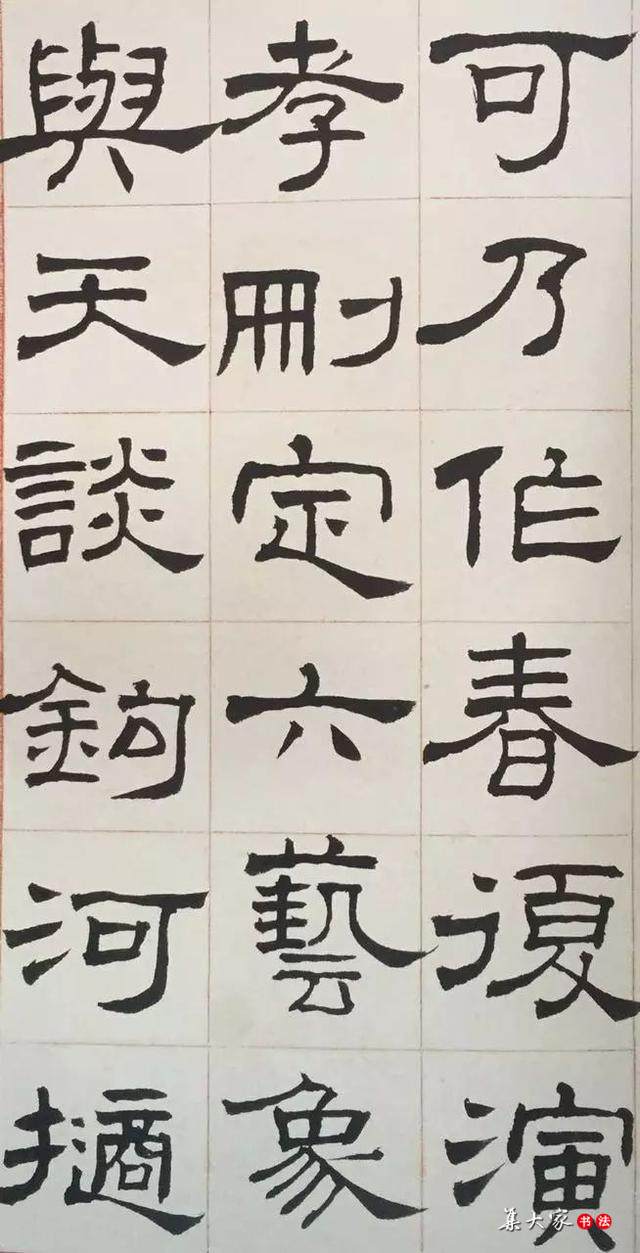 可乃作春復演
孝刪定六藝象
與天談鉤河擿
集大家书法